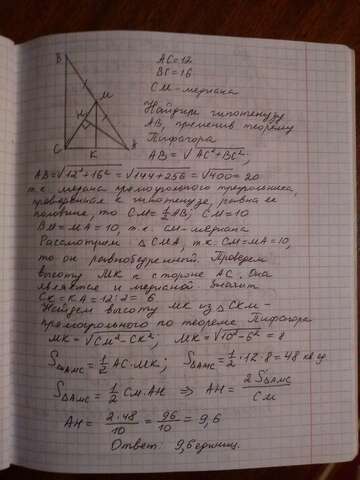 B
AC=12
BC=16
CM-медиана
M
H
C
K
A
Найдём гипотенузу
AB, применив теорему
Пифагора
AB = √AC²+BC²,
AB=√12²+16² = √144+256 = √400 = 20
т.к. медиана прямоугольного треугольника,
проведённая к гипотенузе, равна её
половине, то CM=½AB; CM=10
BM=MA=10, т.к. CM-медиана
Рассмотрим △CMA, т.к. CM=MA=10,
то он равнобедренный. Проведём
высоту MK к стороне AC. Она
является и медианой значит
CK=KA=12:2= 6
Найдём высоту MK из △CKM-
прямоугольного по теореме Пифагора
MK=√CM²-CK², MK=√10²-6² = 8
S△AMC=½ AC·MK; S△AMC=½·12·8=48 кв ед.
S△AMC=½ CM·AH ⇒ AH= 2S△AMC / CM
AH = 2·48/10 = 96/10 = 9,6
Ответ: 9,6 единиц.